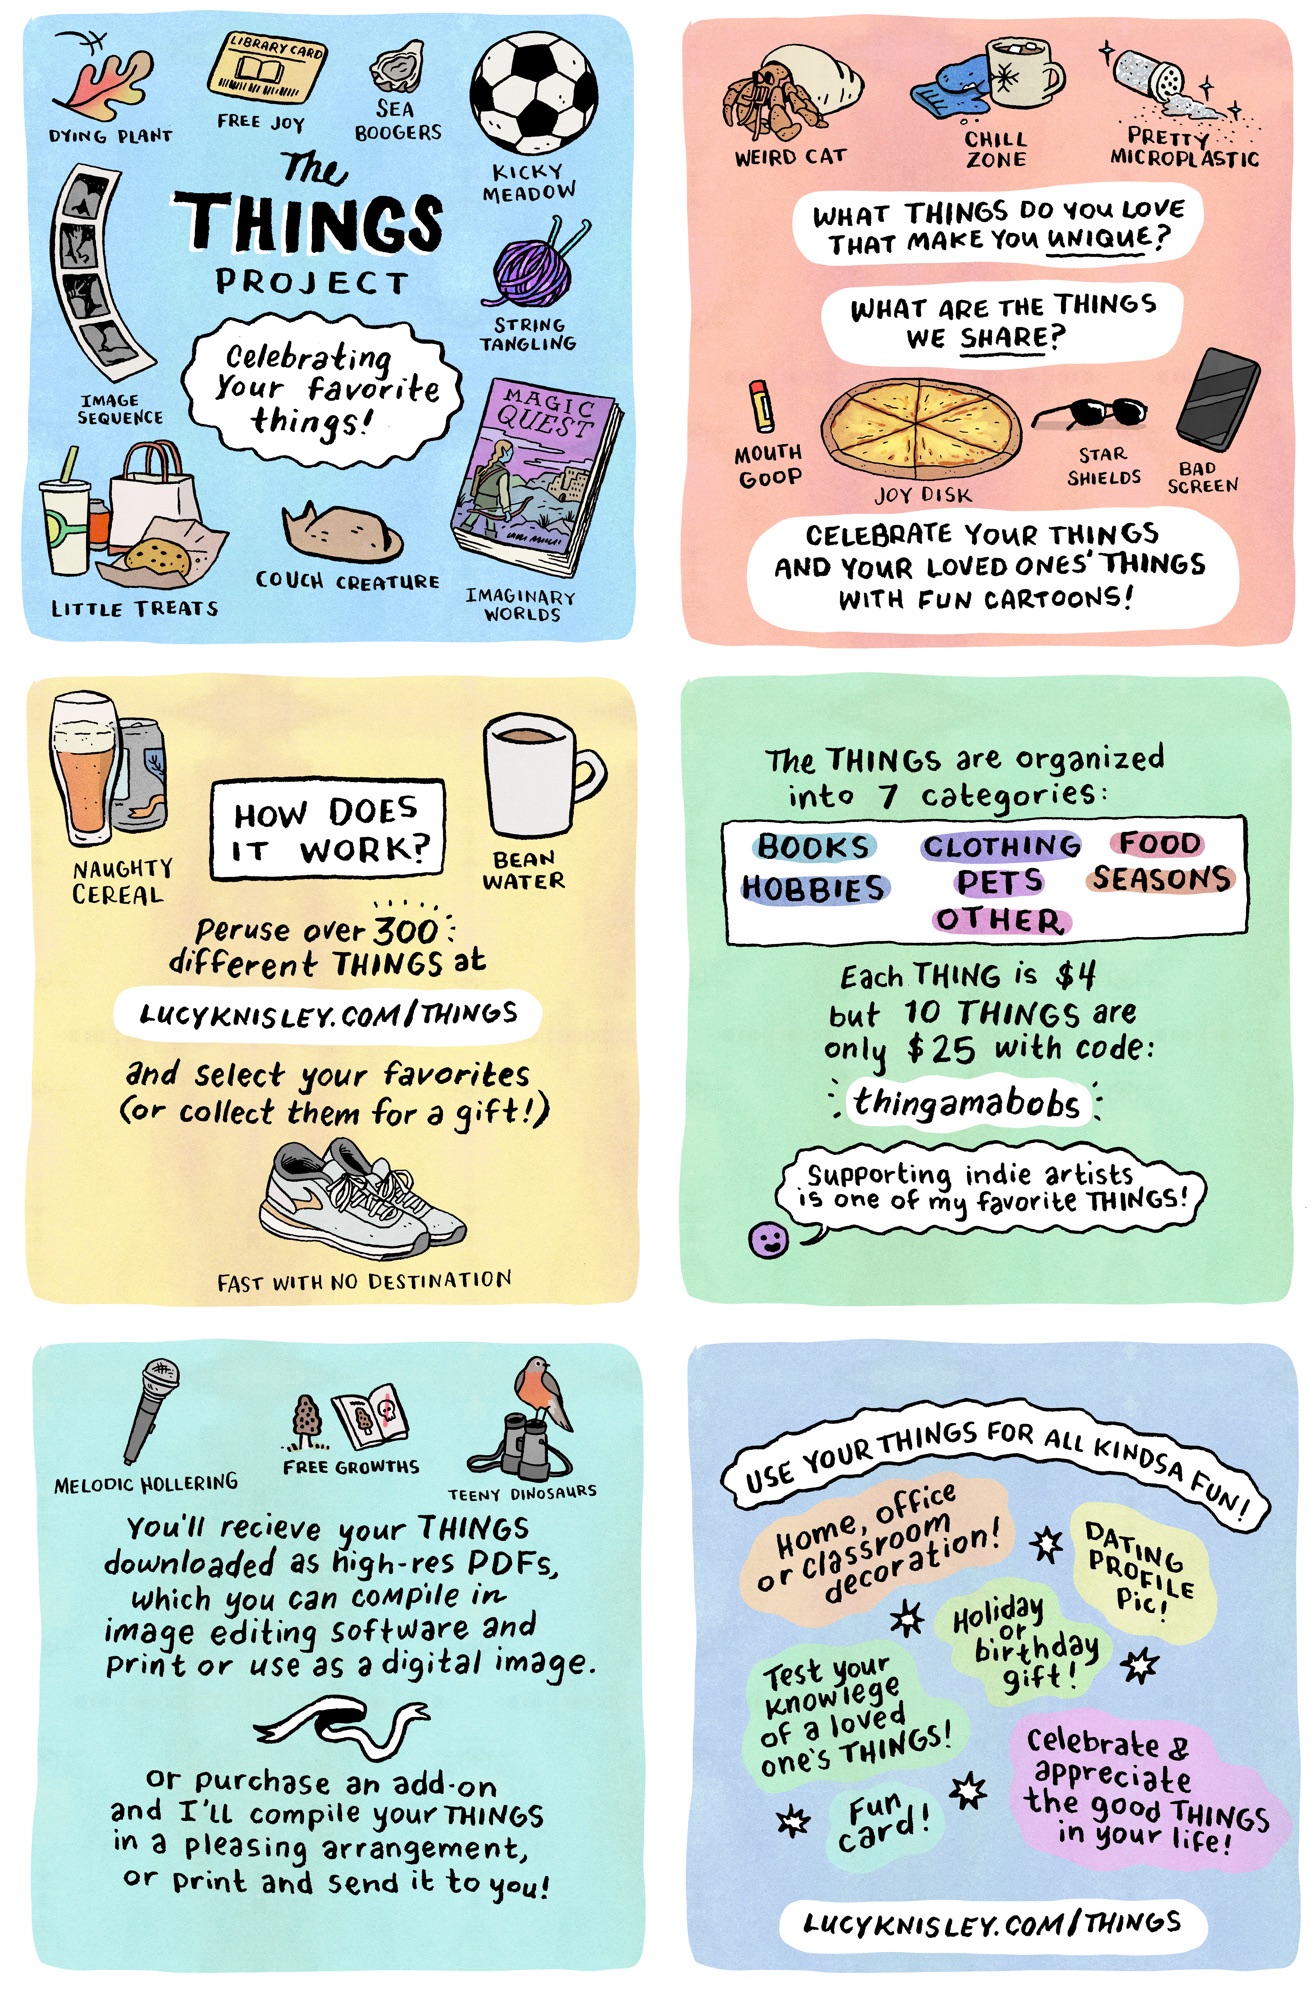 DYING PLANT
LIBRARY CARD
FREE JOY
SEA
BOOGERS
KICKY
MEADOW
The
THINGS
PROJECT
IMAGE
SEQUENCE
Celebrating
your favorite
things!
STRING
TANGLING
MAGIC
QUEST
IMAGINARY
WORLDS
LITTLE TREATS
COUCH CREATURE
WEIRD CAT
CHILL
ZONE
PRETTY
MICROPLASTIC
WHAT THINGS DO YOU LOVE
THAT MAKE YOU UNIQUE?
WHAT ARE THE THINGS
WE SHARE?
MOUTH
GOOP
JOY DISK
STAR
SHIELDS
BAD
SCREEN
CELEBRATE YOUR THINGS
AND YOUR LOVED ONES' THINGS
WITH FUN CARTOONS!
NAUGHTY
CEREAL
HOW DOES
IT WORK?
BEAN
WATER
Peruse over 300
different THINGS at
LUCYKNISLEY.COM/THINGS
and select your favorites
(or collect them for a gift!)
FAST WITH NO DESTINATION
The THINGS are organized
into 7 categories:
BOOKS CLOTHING FOOD
HOBBIES PETS SEASONS
OTHER
Each THING is $4
but 10 THINGS are
only $25 with code:
thingamabobs
Supporting indie artists
is one of my favorite THINGS!
MELODIC HOLLERING
FREE GROWTHS
TEENY DINOSAURS
You'll recieve your THINGS
downloaded as high-res PDFs,
which you can compile in
image editing software and
print or use as a digital image.
or purchase an add-on
and I'll compile your THINGS
in a pleasing arrangement,
or print and send it to you!
USE YOUR THINGS FOR ALL KINDSA FUN!
Home, office
or classroom
decoration!
DATING
PROFILE
Pic!
Holiday
or
birthday
gift!
Test your
knowlege
of a loved
one's THINGS!
Celebrate &
appreciate
the good THINGS
in your life!
Fun
card!
LUCYKNISLEY.COM/THINGS